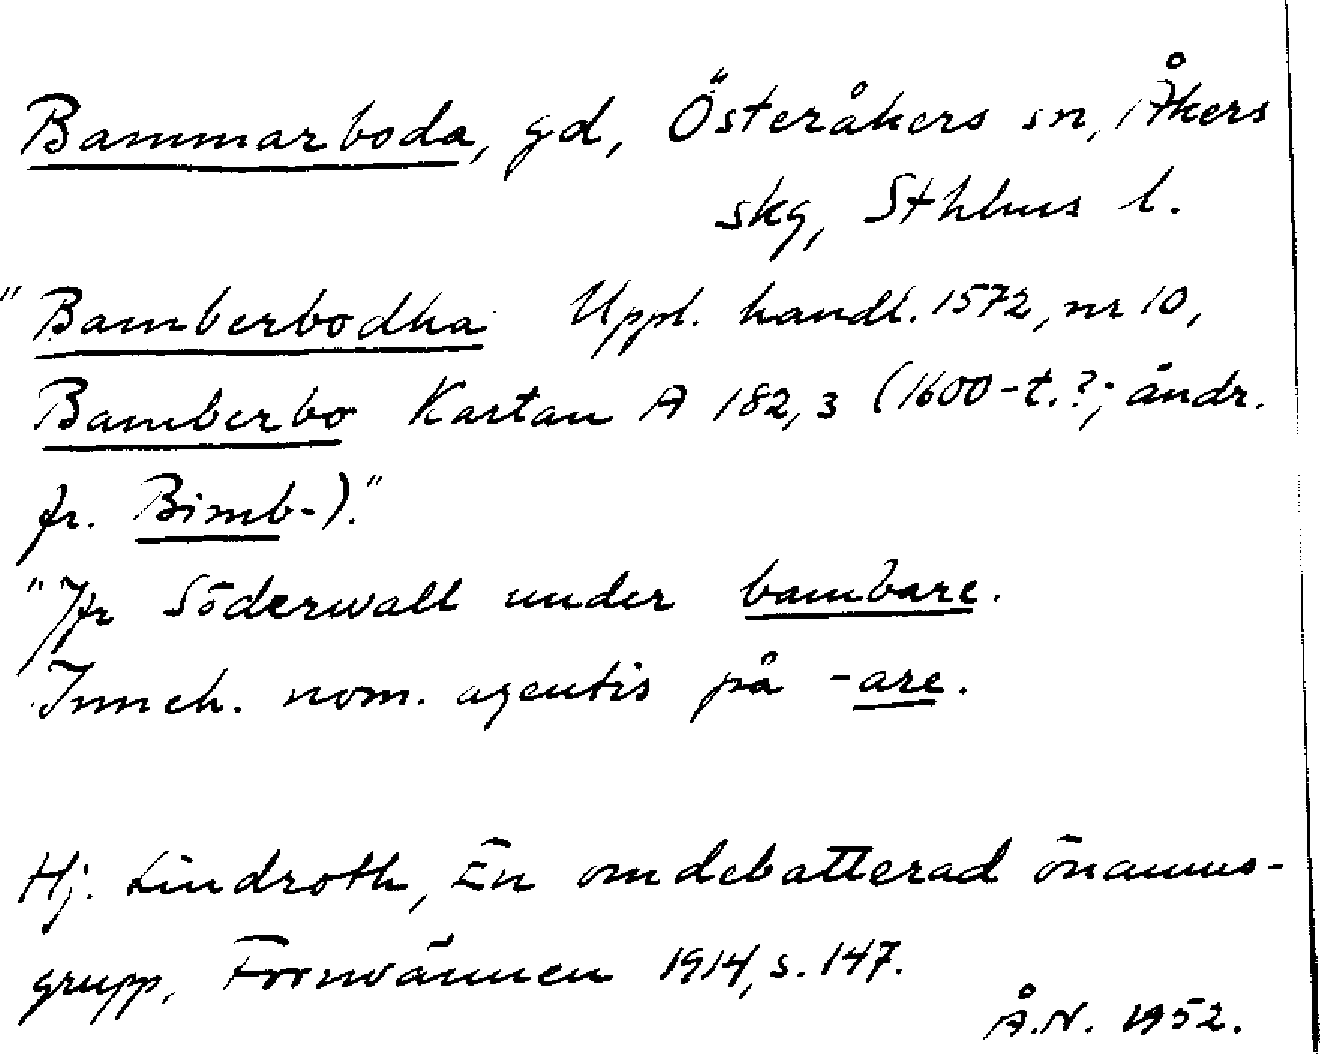 Bammarboda, gd, Österåkers sn, Åkers
skg, Sthlms l.
"Bamberbodha Uppl. handl. 1572, nr 10,
Bamberbo Kartan A 182,3 (1600-t.?; ändr.
fr. Bimb-)."
"Jfr Söderwall under bambare.
Inneh. nom. agentis på -are.
Hj. Lindroth, En omdebatterad önamns-
grupp, Fornvännen 1914, s. 147.
Å.N. 1952.